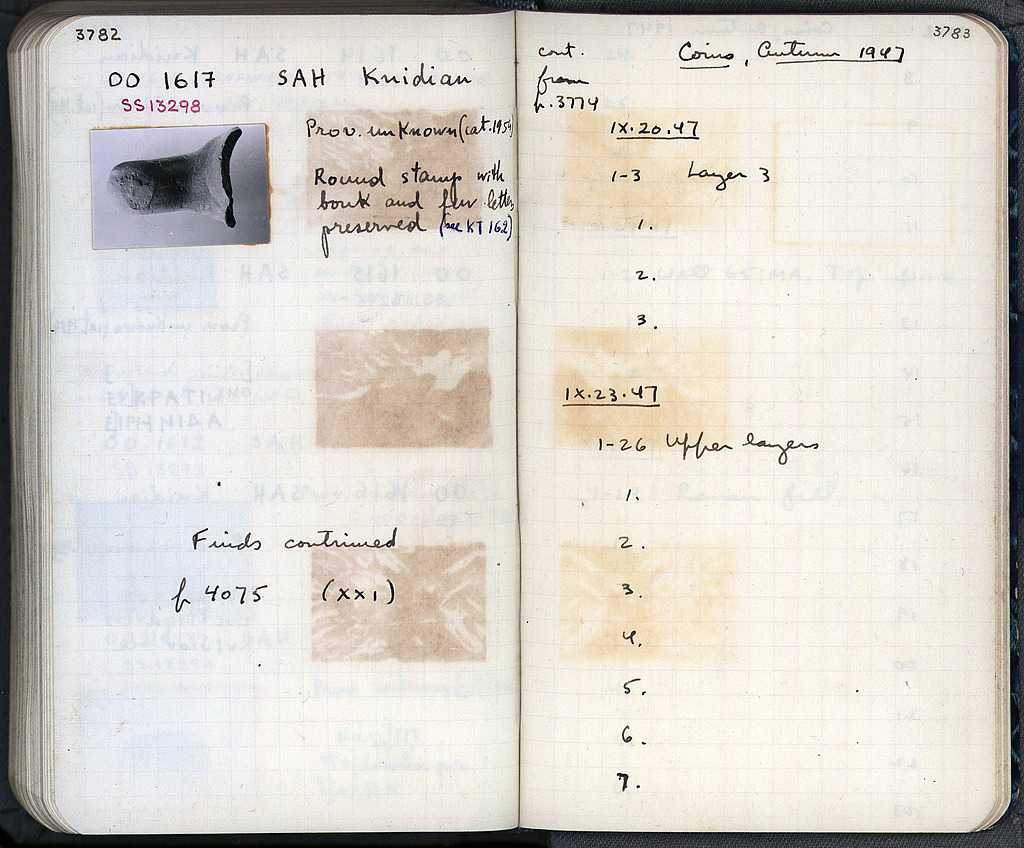 3782
OO 1617 SAH Knidian
SS 13298
Prov. unknown (cat. 1954)
Round stamp with
bouk and few letters
preserved (see KT 162)
Finds continued
p 4075 (XXI)
3783
cont.
from
p. 3774
Coins, Autumn 1947
IX.20.47
1-3 Layer 3
1.
2.
3.
IX.23.47
1-26 Upper layers
1.
2.
3.
4.
5.
6.
7.